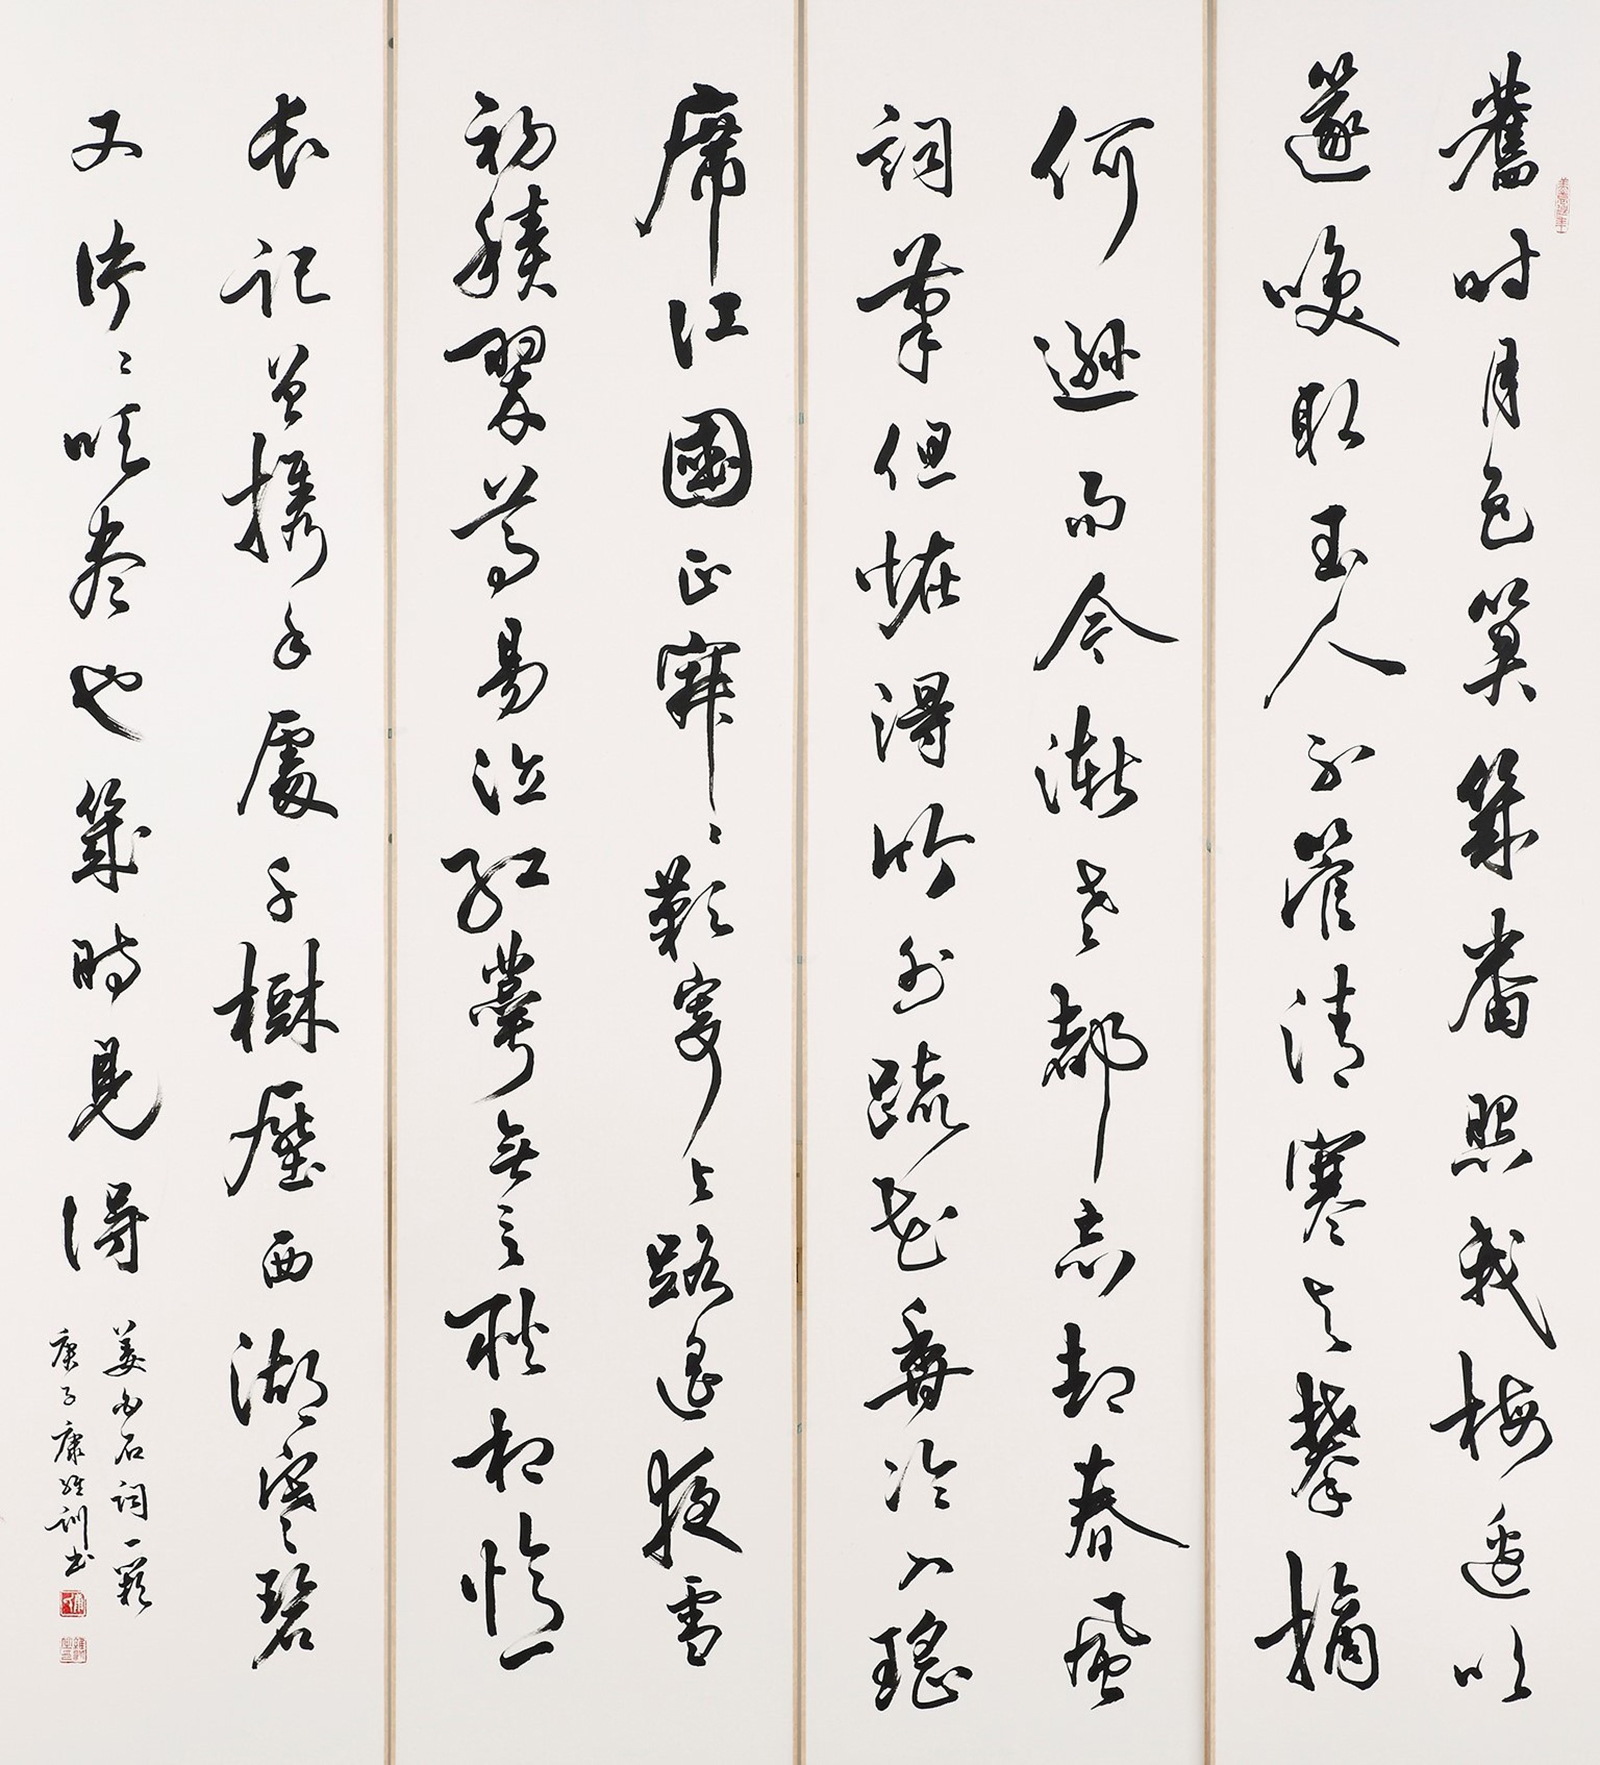 舊时月色筭幾番照我梅邊吹
篴喚起玉人不管清寒与攀摘
何遜而今漸老都忘却春風
詞筆但怪得竹外疏花香冷入瑤
席江國正寂〻歎寄与路遥夜雪
初積翠尊易泣紅萼無言耿相憶
長記曾攜手處千樹壓西湖寒碧
又片〻吹盡也幾時見得
姜白石詞一闋
庚子康維訓書